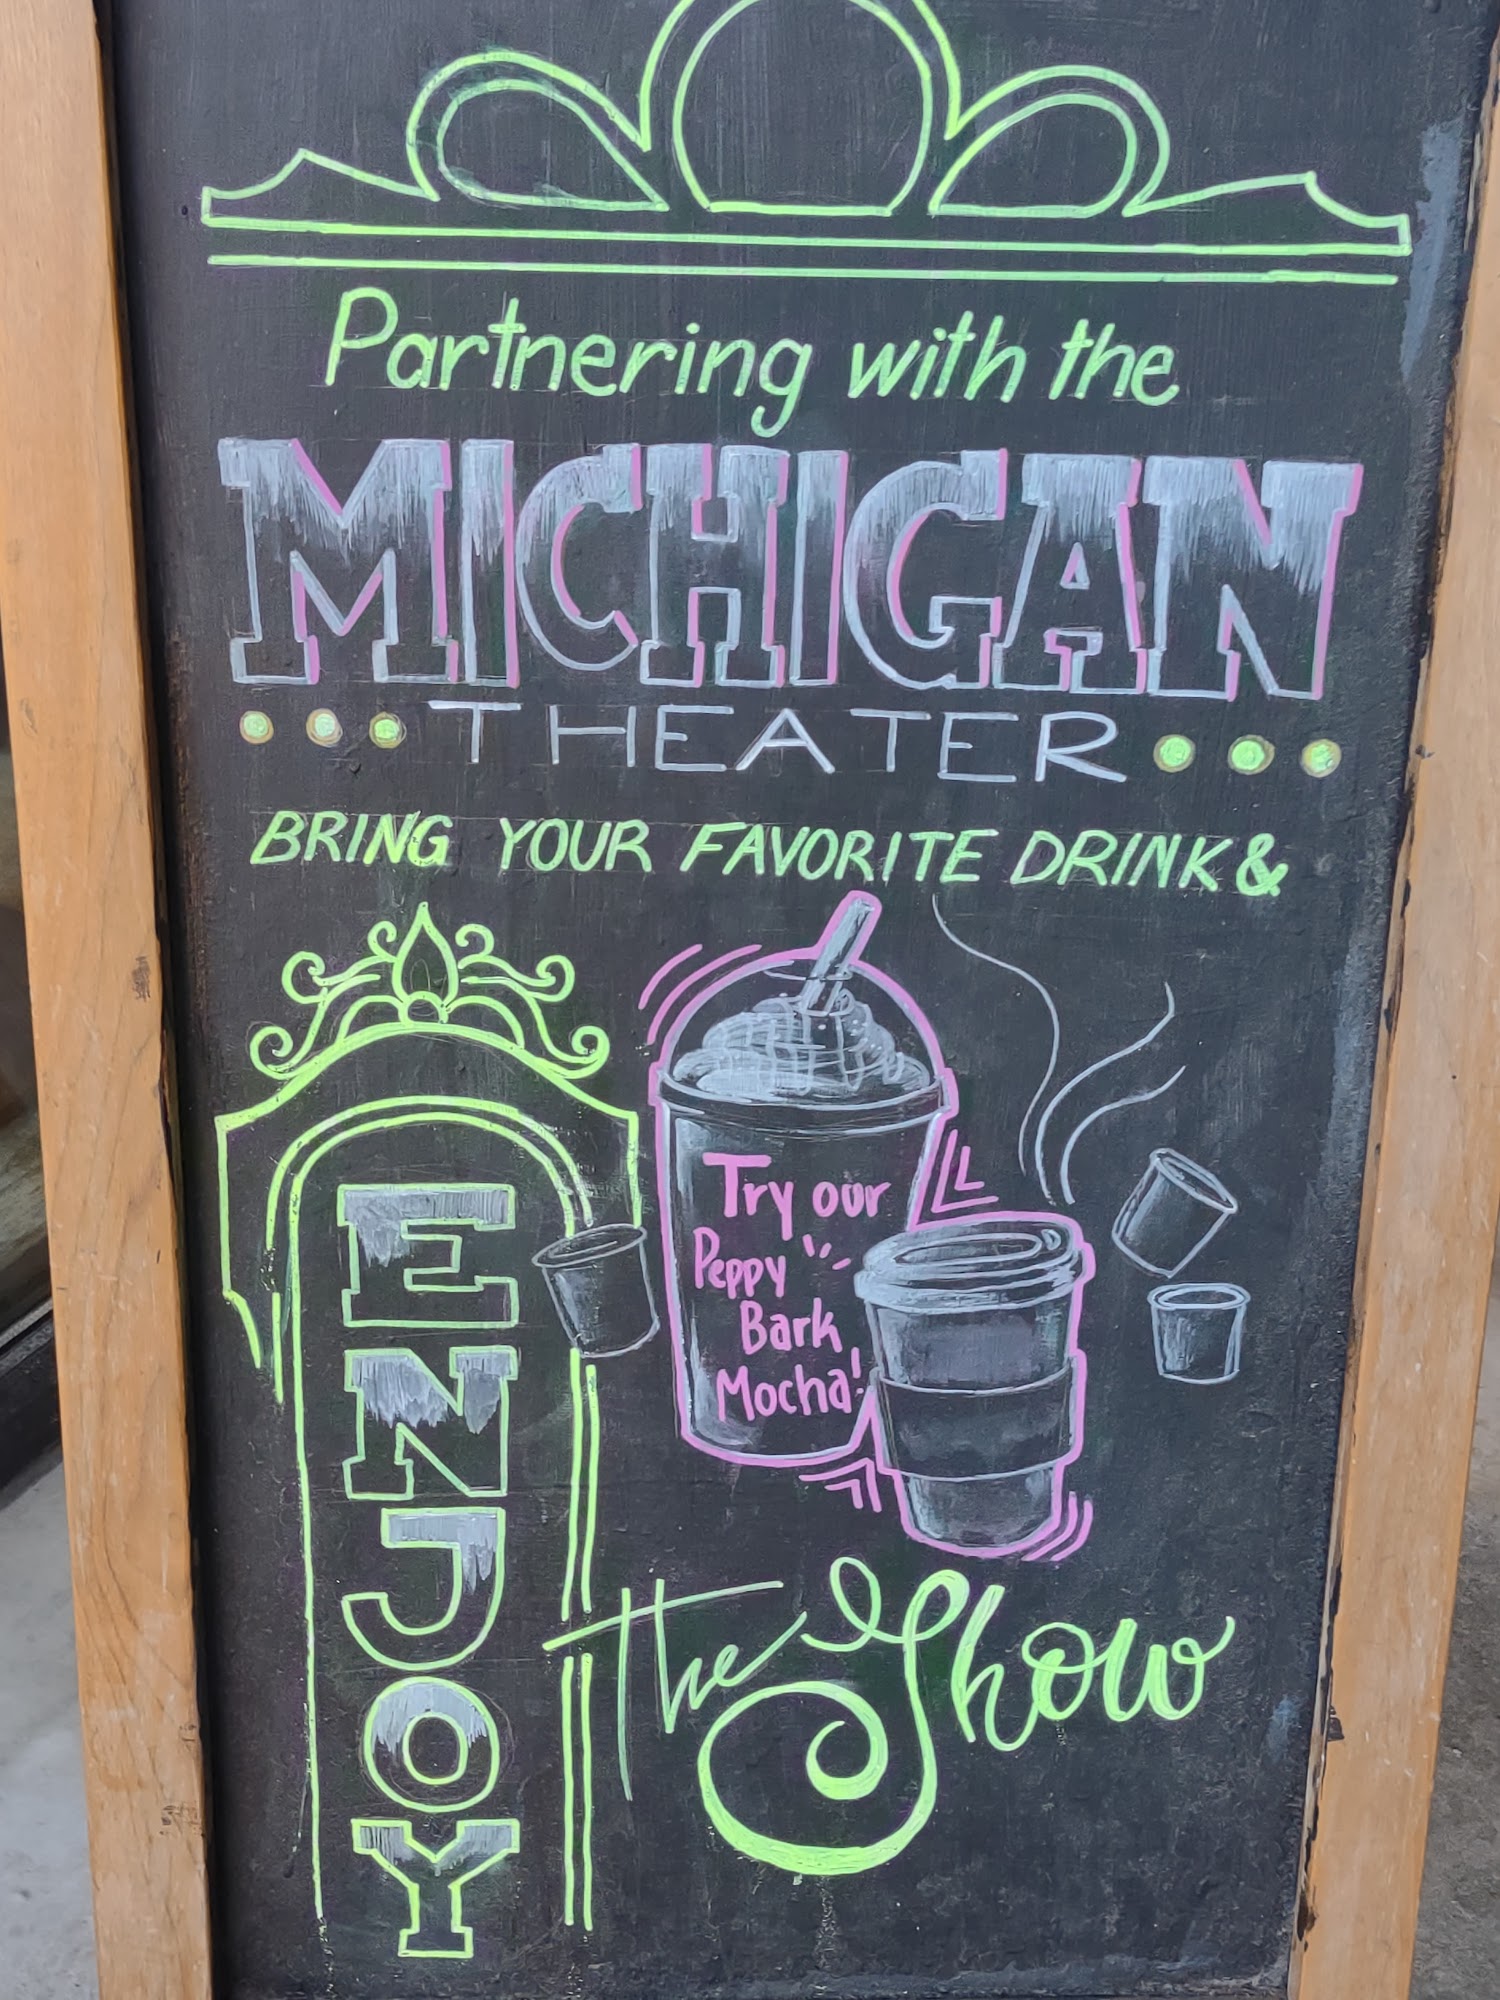 Partnering with the
MICHIGAN
THEATER
BRING YOUR FAVORITE DRINK &
Try our
Peppy
Bark
Mocha!
ENJOY
The Show